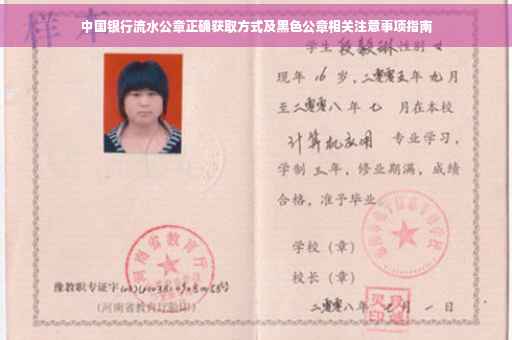 中国银行流水公章正确获取方式及黑色公章相关注意事项指南
样本
学生段毅琳性别女
现年16岁,二零零五年九月
至二零零八年七月在本校
计算机应用 专业学习,
学制三年,修业期满,成绩
合格,准予毕业。
学校(章)
校长(章)
二零零八年 月一日
河南省教育厅
豫教职专证字
(河南省教育厅验印)